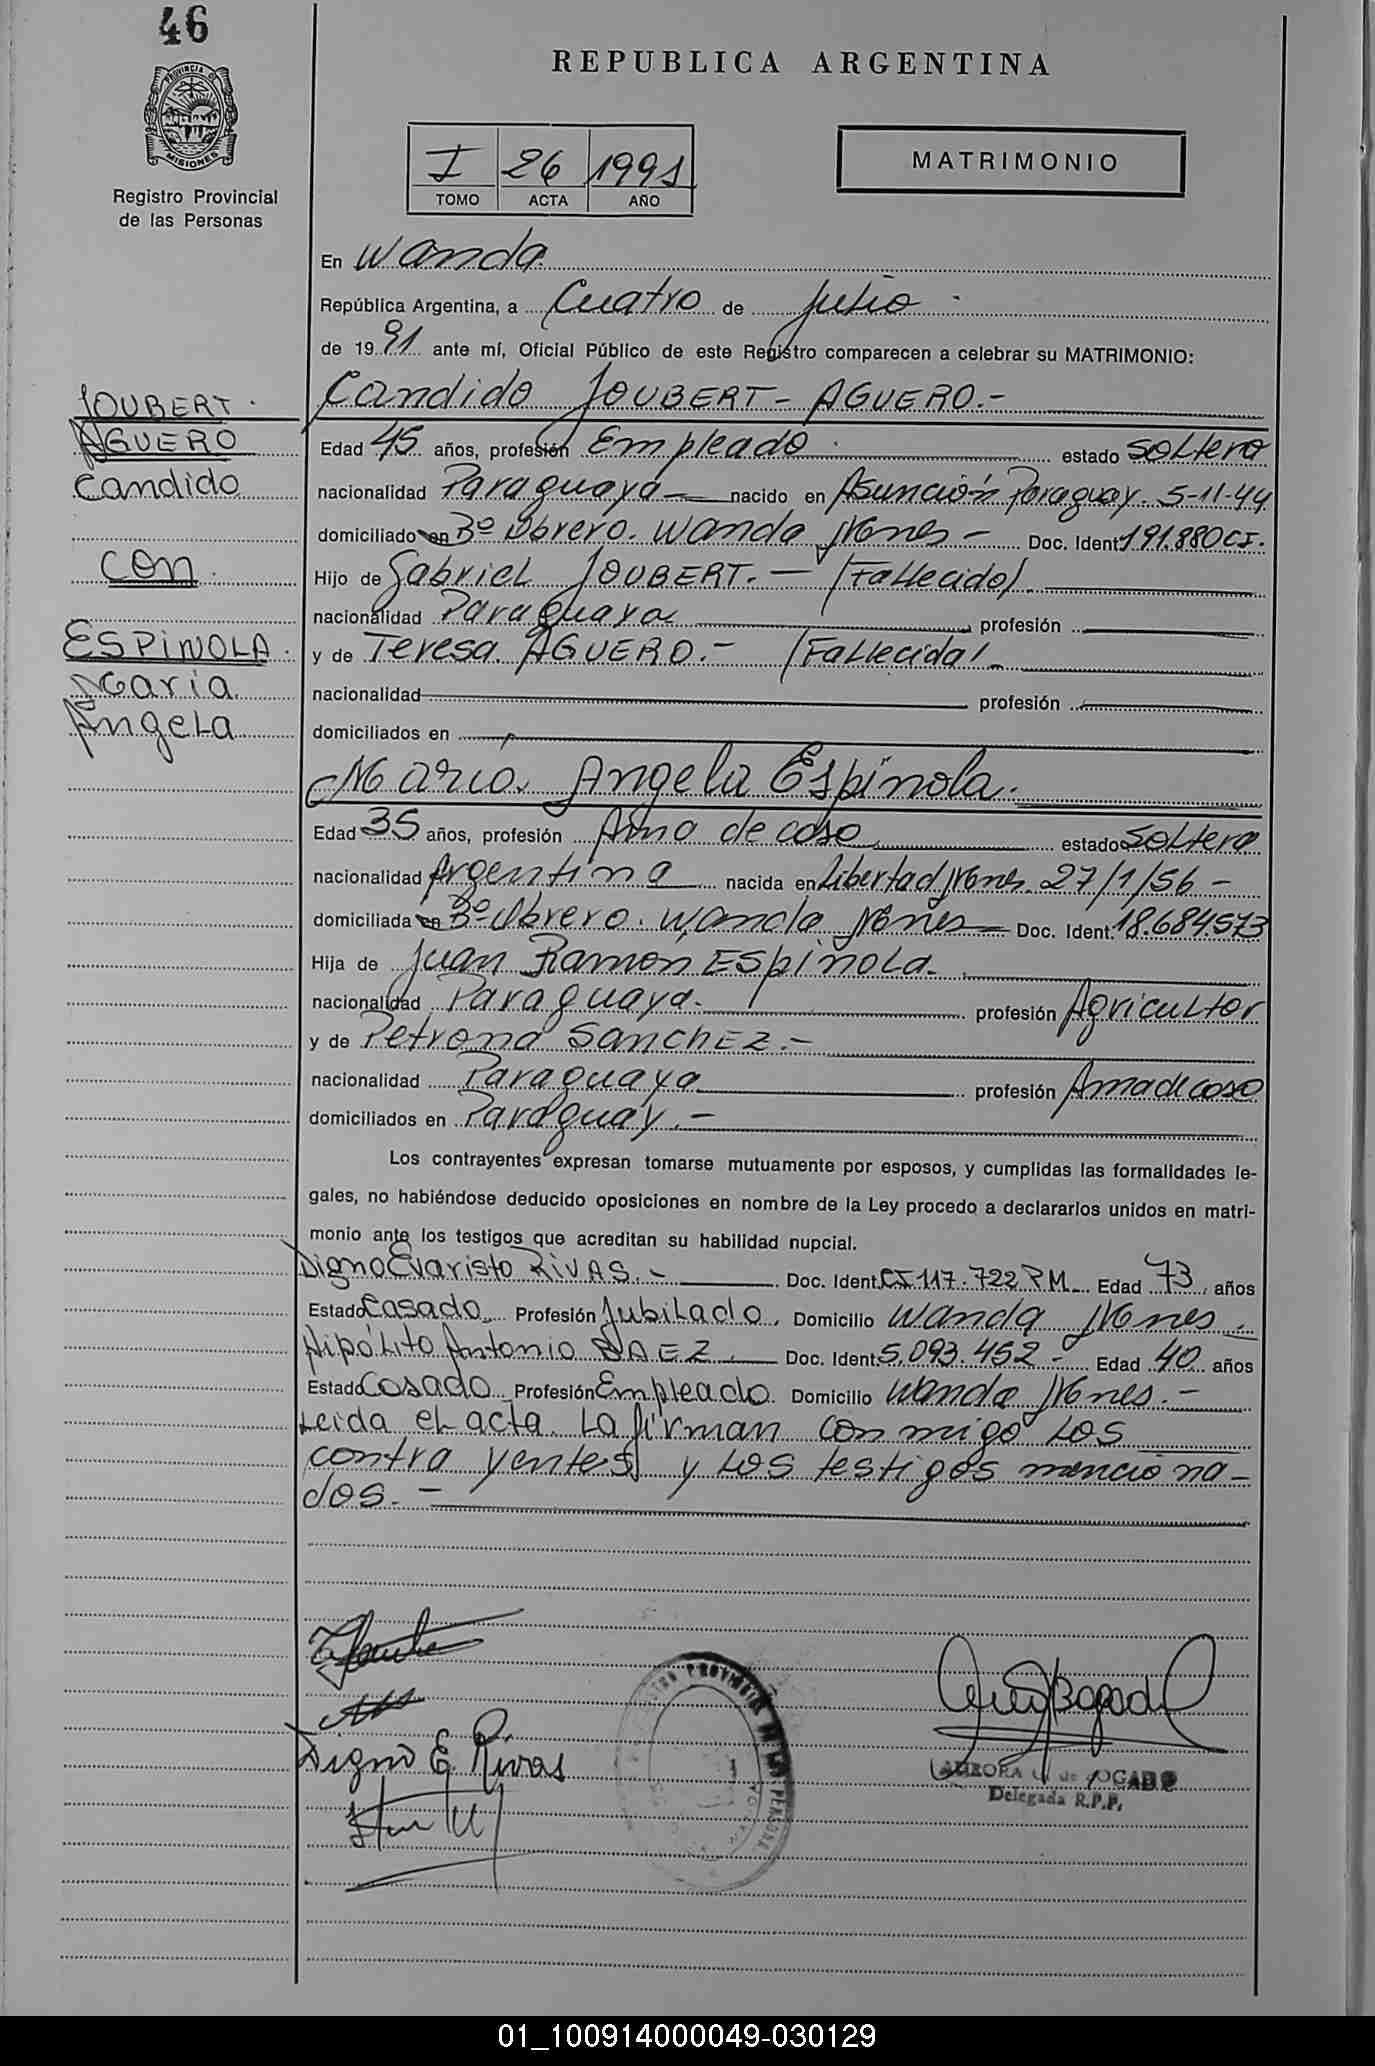 46
PROVINCIA DE
MISIONES
Registro Provincial
de las Personas
REPUBLICA ARGENTINA
I 26 1991
TOMO ACTA AÑO
MATRIMONIO
JOUBERT.
AGUERO
Candido
CON.
ESPINOLA.
Maria
Angela
En Wanda.
República Argentina, a Cuatro de Julio.
de 1991 ante mí, Oficial Público de este Registro comparecen a celebrar su MATRIMONIO:
Candido JOUBERT - AGUERO.-
Edad 45 años, profesión Empleado. estado soltero
nacionalidad Paraguaya nacido en Asunción Paraguay. 5-11-44
domiciliado en Bº Obrero. Wanda Mnes - Doc. Ident. 191.880 CI.
Hijo de Gabriel JOUBERT. - /Fallecido/.
nacionalidad Paraguaya profesión
y de Teresa. AGUERO.- /Fallecida/.
nacionalidad profesión
domiciliados en
Maria. Angela Espinola.
Edad 35 años, profesión Ama de casa estado soltera
nacionalidad Argentina nacida en Libertad Mnes. 27/1/56 -
domiciliada en Bº Obrero. Wanda Mnes Doc. Ident. 18.684.573
Hija de Juan Ramon ESpiNoLa.
nacionalidad Paraguaya. profesión Agricultor
y de Petrona SANCHEZ.-
nacionalidad Paraguaya profesión Ama de casa
domiciliados en Paraguay.-
Los contrayentes expresan tomarse mutuamente por esposos, y cumplidas las formalidades le-
gales, no habiéndose deducido oposiciones en nombre de la Ley procedo a declararlos unidos en matri-
monio ante los testigos que acreditan su habilidad nupcial.
Digno Evaristo RIVAS.- Doc. Ident. CI 117.722 PM Edad 73 años
Estado Casado Profesión Jubilado. Domicilio Wanda Mnes.
Hipólito Antonio BAEZ. Doc. Ident. 5.093.452- Edad 40 años
Estado Casado Profesión Empleado Domicilio Wanda Mnes.-
Leida el acta. La firman conmigo los
contrayentes y los testigos menciona-
dos.-
Digno E. Rivas
AURORA de BOGADO
Delegada R.P.P.
01_100914000049-030129